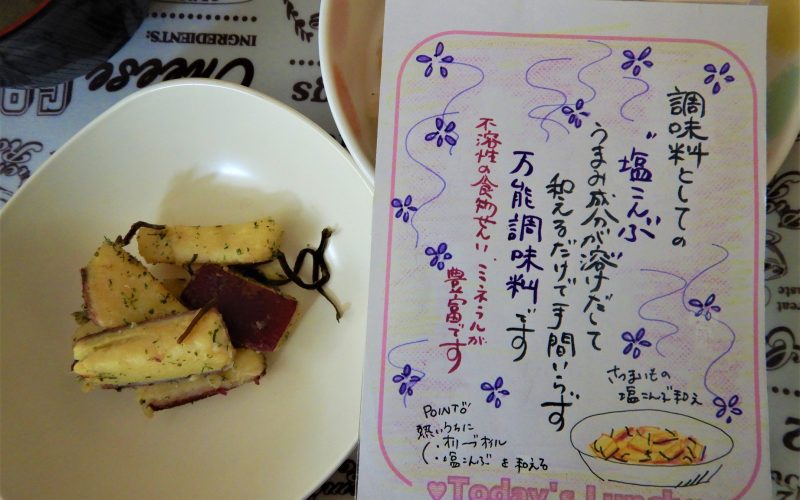 調味料としての
"塩こんぶ
うまみ成分が溶けだして
和えるだけで手間いらず
万能調味料です
不溶性の食物せんい、ミネラルが
豊富です
さつまいもの
塩こんぶ和え
POINT
熱いうちに
・オリーブオイル
・塩こんぶ を和える
♥Today's Lunch
INGREDIENTS:
Cheese